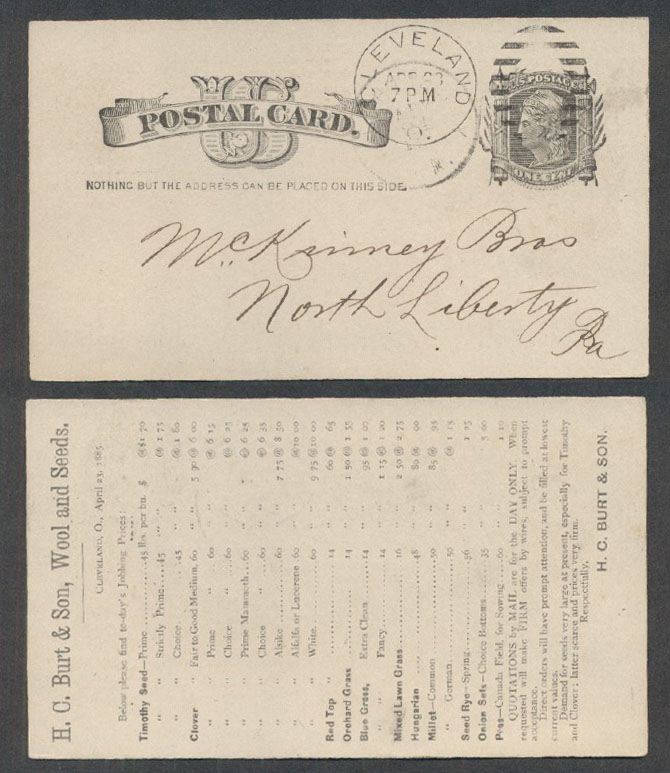 U S
POSTAL CARD.
NOTHING BUT THE ADDRESS CAN BE PLACED ON THIS SIDE.
CLEVELAND
APR 23
7 PM
O.
U.S. POSTAL CARD
ONE CENT
McKinney Bros
North Liberty
Pa
H. C. Burt & Son, Wool and Seeds.
CLEVELAND, O., April 23, 1885.
Below please find to-day's Jobbing Prices:
Timothy Seed—Prime........45 lbs. per bu. $ @$1 70
" " Strictly Prime....45 " " @ 1 75
" " Choice.........45 " " @ 1 80
Clover " Fair to Good Medium, 60 " " 5 90 @ 6 00
" " Prime " 60 " " @ 6 15
" " Choice " 60 " " @ 6 25
" " Prime Mammoth...60 " " @ 6 25
" " Choice " 60 " " @ 6 35
" " Alsike 60 " " 7 75 @ 8 50
" " Alfalfa or Lucerene 60 " " @10 00
" " White 60 " " 9 75 @10 00
Red Top 14 " " 60 @ 65
Orchard Grass 14 " " 1 50 @ 1 55
Blue Grass, Extra Clean 14 " " 95 @ 1 00
" " Fancy 14 " " 1 15 @ 1 20
Mixed Lawn Grass 16 " " 2 50 @ 2 75
Hungarian 48 " " 80 @ 90
Millet—Common 50 " " 85 @ 95
" German 50 " " @ 1 15
Seed Rye—Spring 56 " " 1 25
Onion Sets—Choice Bottoms 35 " " 5 00
Peas—Canada Field, for Sowing 60 " " 1 10
QUOTATIONS by MAIL are for the DAY ONLY. When
requested will make FIRM offers by wires, subject to prompt
acceptance.
Direct orders will have prompt attention, and be filled at lowest
current values.
Demand for seeds very large at present, especially for Timothy
and Clover; latter scarce and prices very firm.
Respectfully,
H. C. BURT & SON.